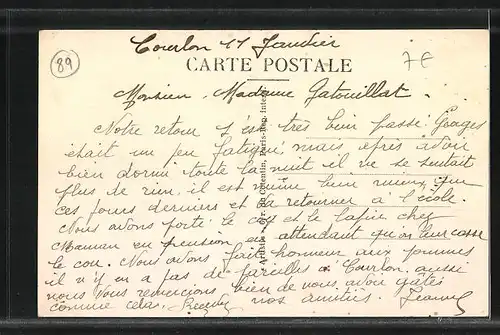 Courlon 11 Janvier
89
7€
CARTE POSTALE
Monsieur, Madame Gatouillat.
Notre retour s'est très bien passé. Georges
était un peu fatigué mais après avoir
bien dormi toute la nuit il ne se sentait
plus de rien, il est même bien mieux que
ces jours derniers et va retourner à l'école.
Nous avons porté le coq et le lapin chez
Maman en pension en attendant qu'on leur casse
le cou. Nous avons fait honneur aux pommes
il n'y en a pas de pareilles à Courlon, aussi
nous vous remercions bien de nous avoir gâtés
comme cela. Recevez nos amitiés. Jeanne